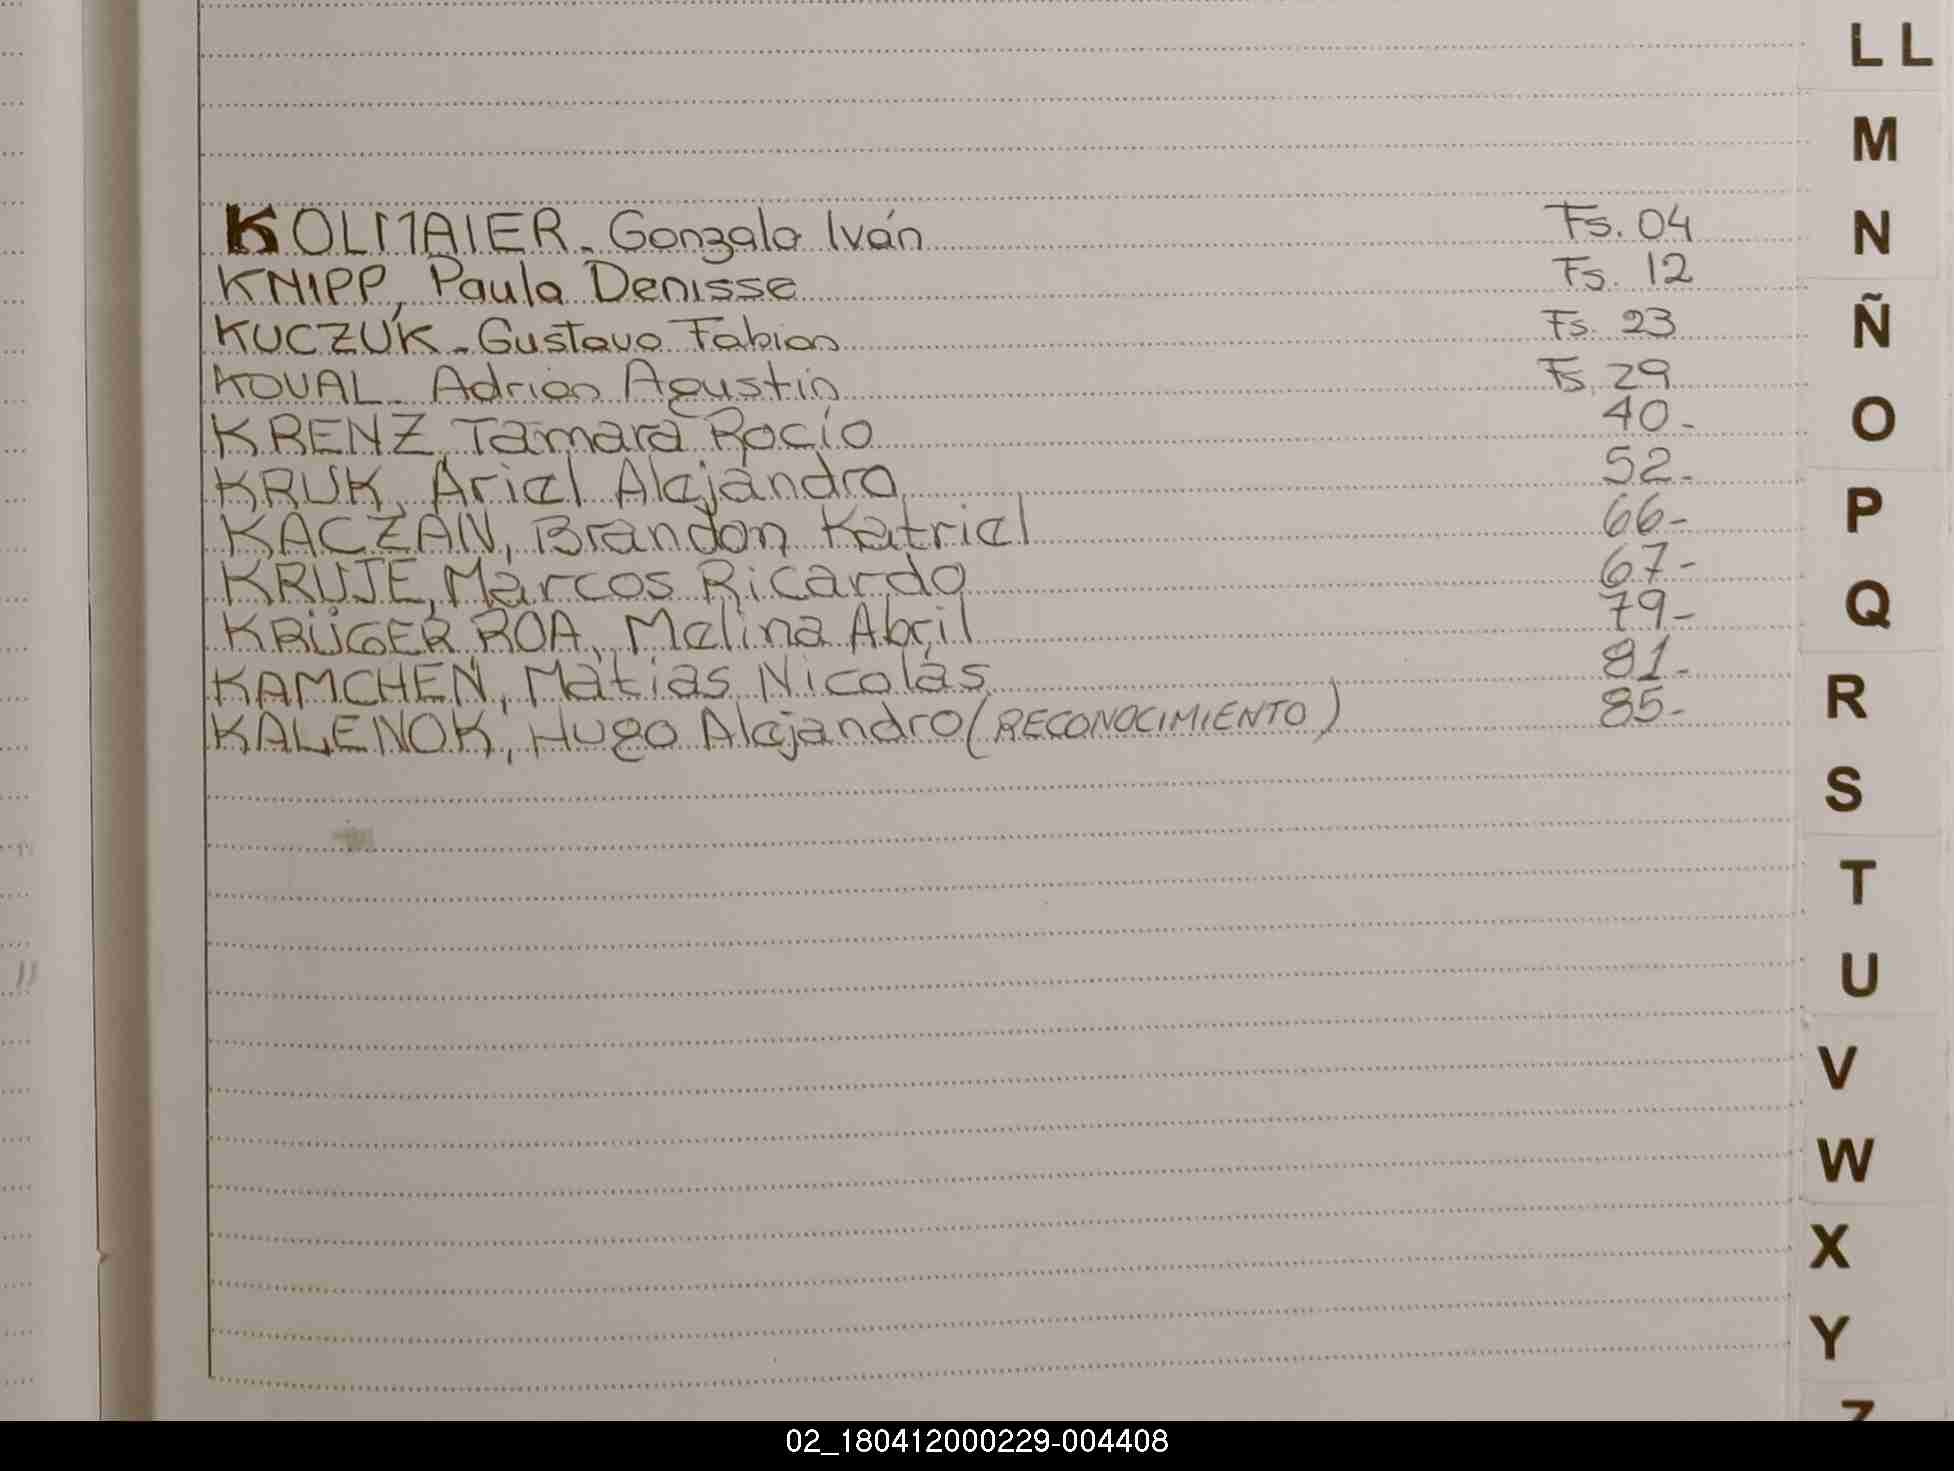 KOLMAIER - Gonzalo Iván Fs. 04
KNIPP, Paula Denisse Fs. 12
KUCZUK - Gustavo Fabian Fs. 23
KOVAL - Adrian Agustin Fs. 29
KRENZ, Tamara Rocío 40-
KRUK, Ariel Alejandro 52-
KACZAN, Brandon Katriel 66-
KRUJE, Marcos Ricardo 67-
KRÜGER ROA, Melina Abril 79-
KAMCHEN, Matias Nicolás 81-
KALENOK, Hugo Alejandro (RECONOCIMIENTO) 85-
LL
M
N
Ñ
O
P
Q
R
S
T
U
V
W
X
Y
Z
02_180412000229-004408